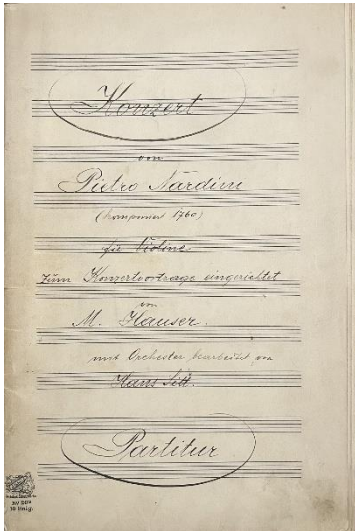 Konzert
von
Pietro Nardini
(komponiert 1760)
für Violine
zum Konzertvortrage eingerichtet
von
M. Hauser.
mit Orchester bearbeitet von
Hans Sitt.
Partitur